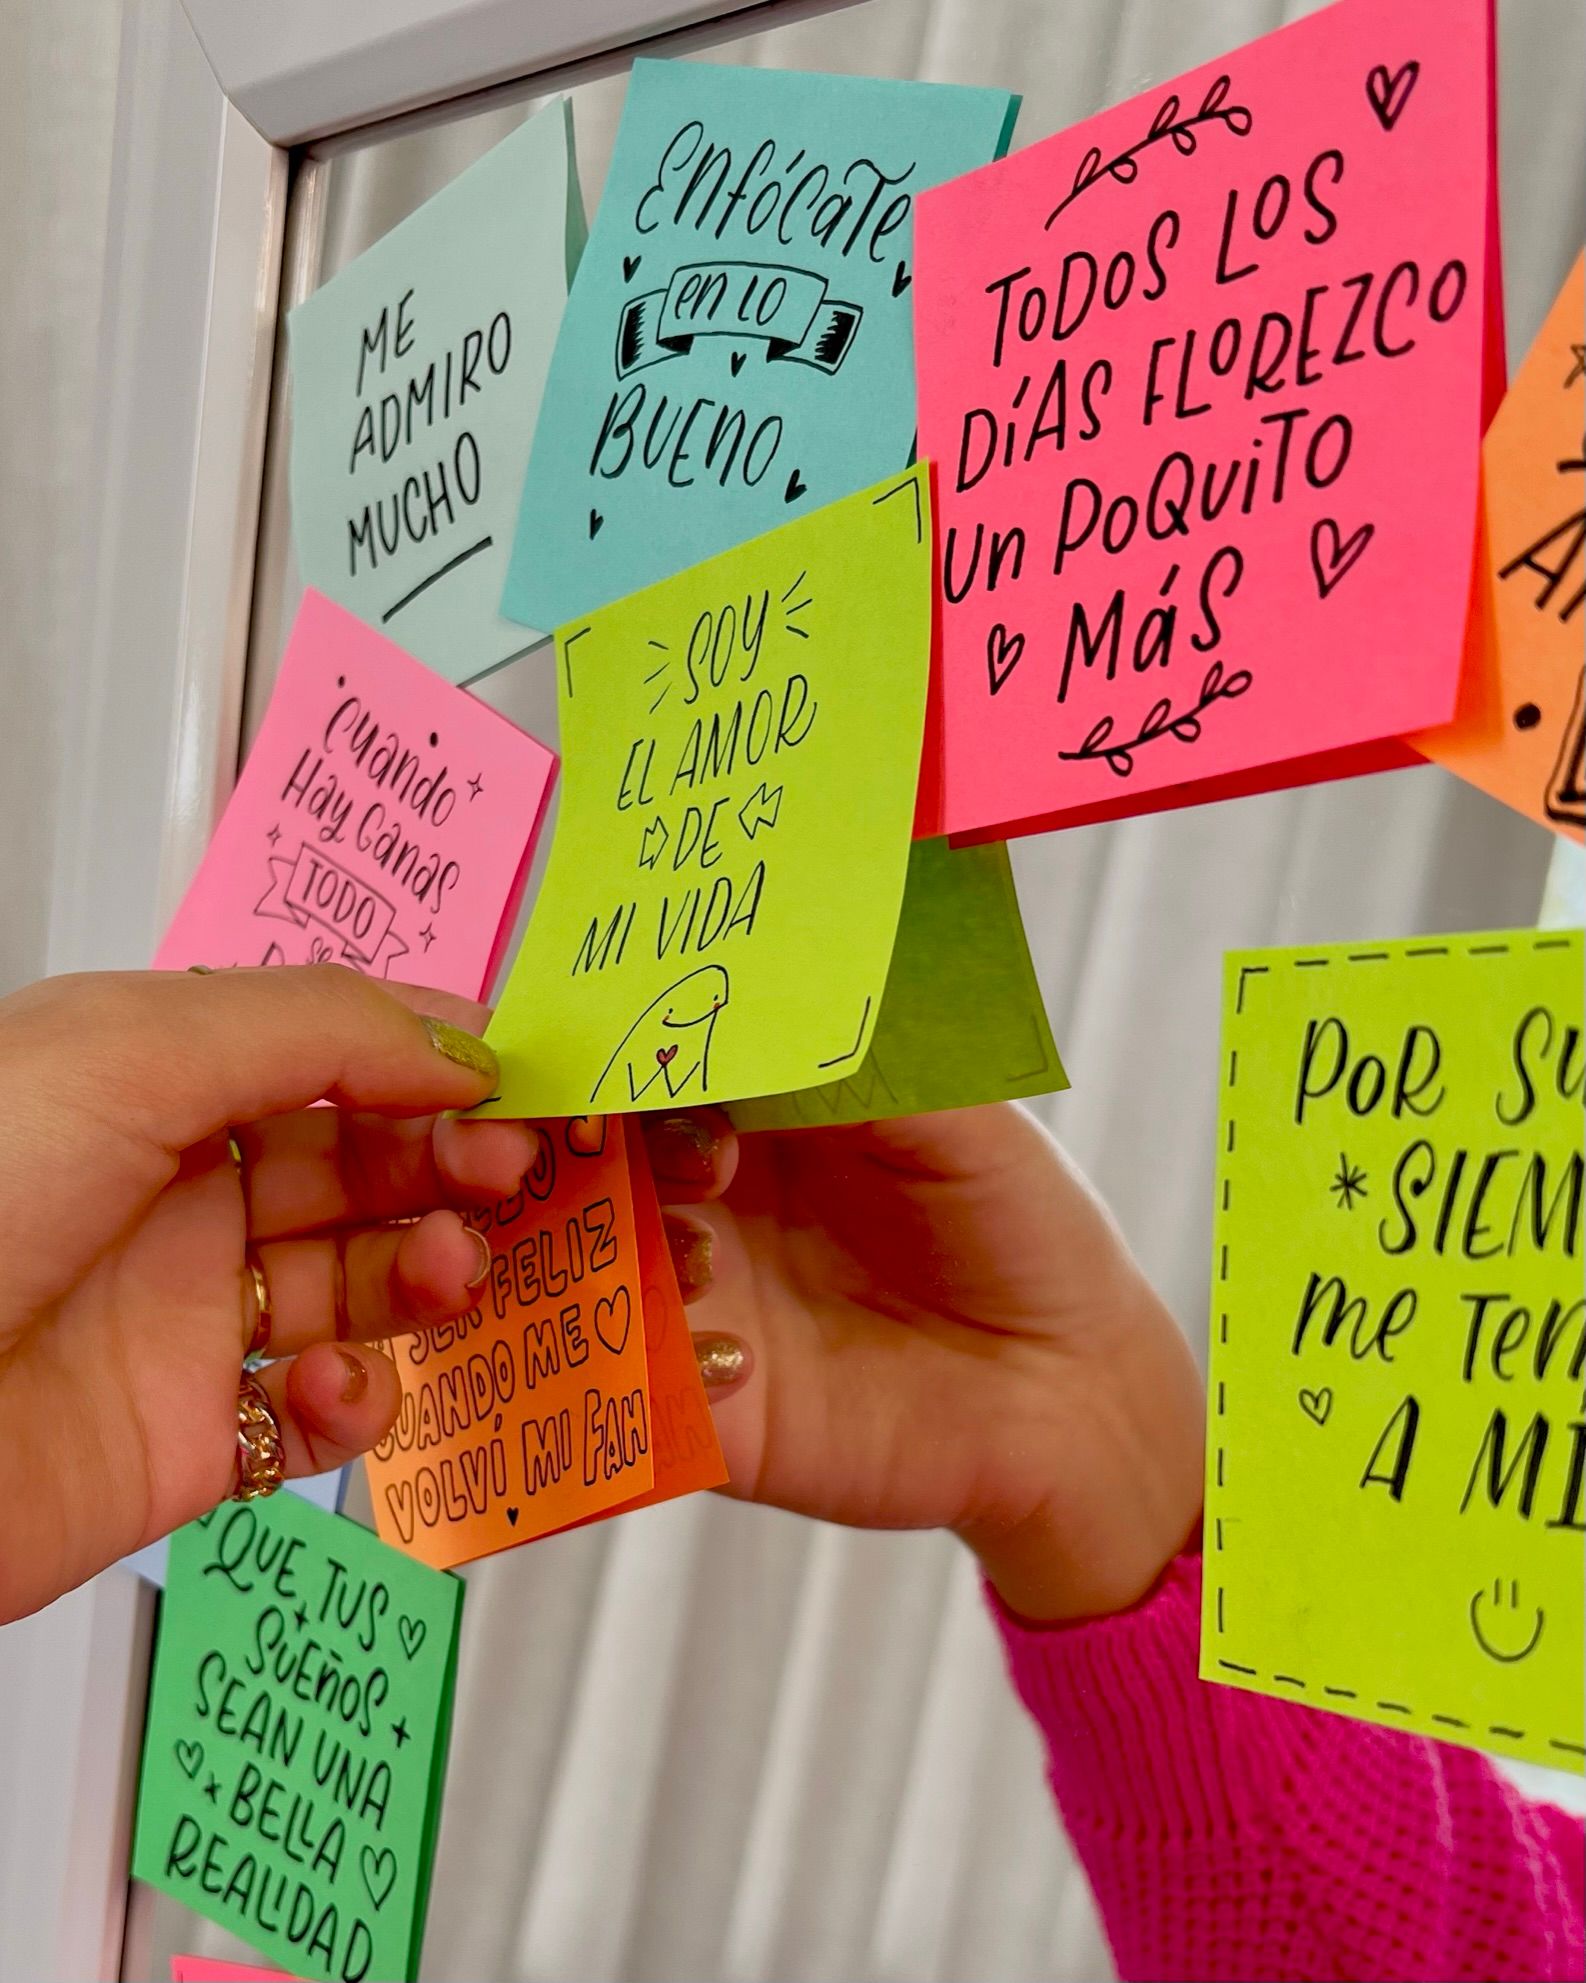 ME
ADMIRO
MUCHO
Enfócate
en lo
BUEnO
TODOS LOS
DÍAS FLOREZCO
un POQuiTO
MáS
Cuando
Hay Ganas
TODO
se
SOY
EL AMOR
DE
MI VIDA
FELIZ
CUANDO ME
VOLVÍ MI FAN
POR
SIEM
me Ten
A MÍ
QUE TUS
SUEÑOS
SEAN UNA
BELLA
REALIDAD